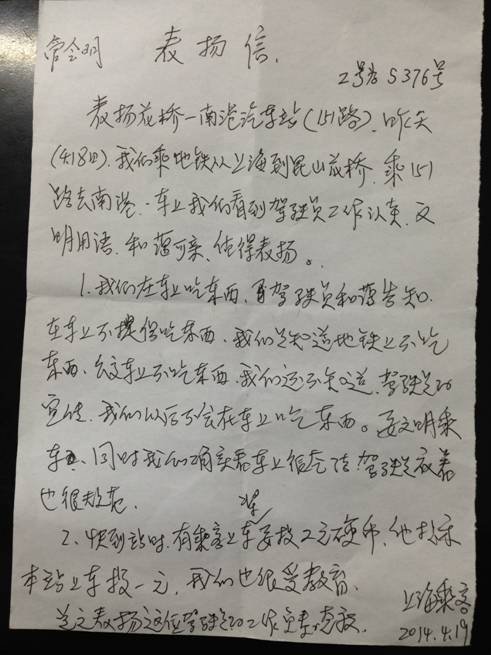 常会明 表扬信.
2号岗 S376号
表扬花桥—南港汽车站(151路).昨天
(418日).我们乘地铁从上海到昆山花桥.乘151
路去南港.车上我们看到驾驶员工作认真.文
明用语.和蔼可亲.值得表扬。
1.我们在车上吃东西.驾驶员和蔼告知.
在车上不提倡吃东西.我们只知道地铁上不吃
东西.公交车上不吃东西.我们还不知道.驾驶员的
宣传.我们以后不会在车上吃东西。要文明乘
车.同时我们确实看车上很整洁.驾驶员衣着
也很规范.
2.快到站时.有乘客上车要投2元硬币.他提示
本站上车投一元.我们也很受教育.
表扬这位驾驶员的工作负责.
上海乘客
2014.4.19